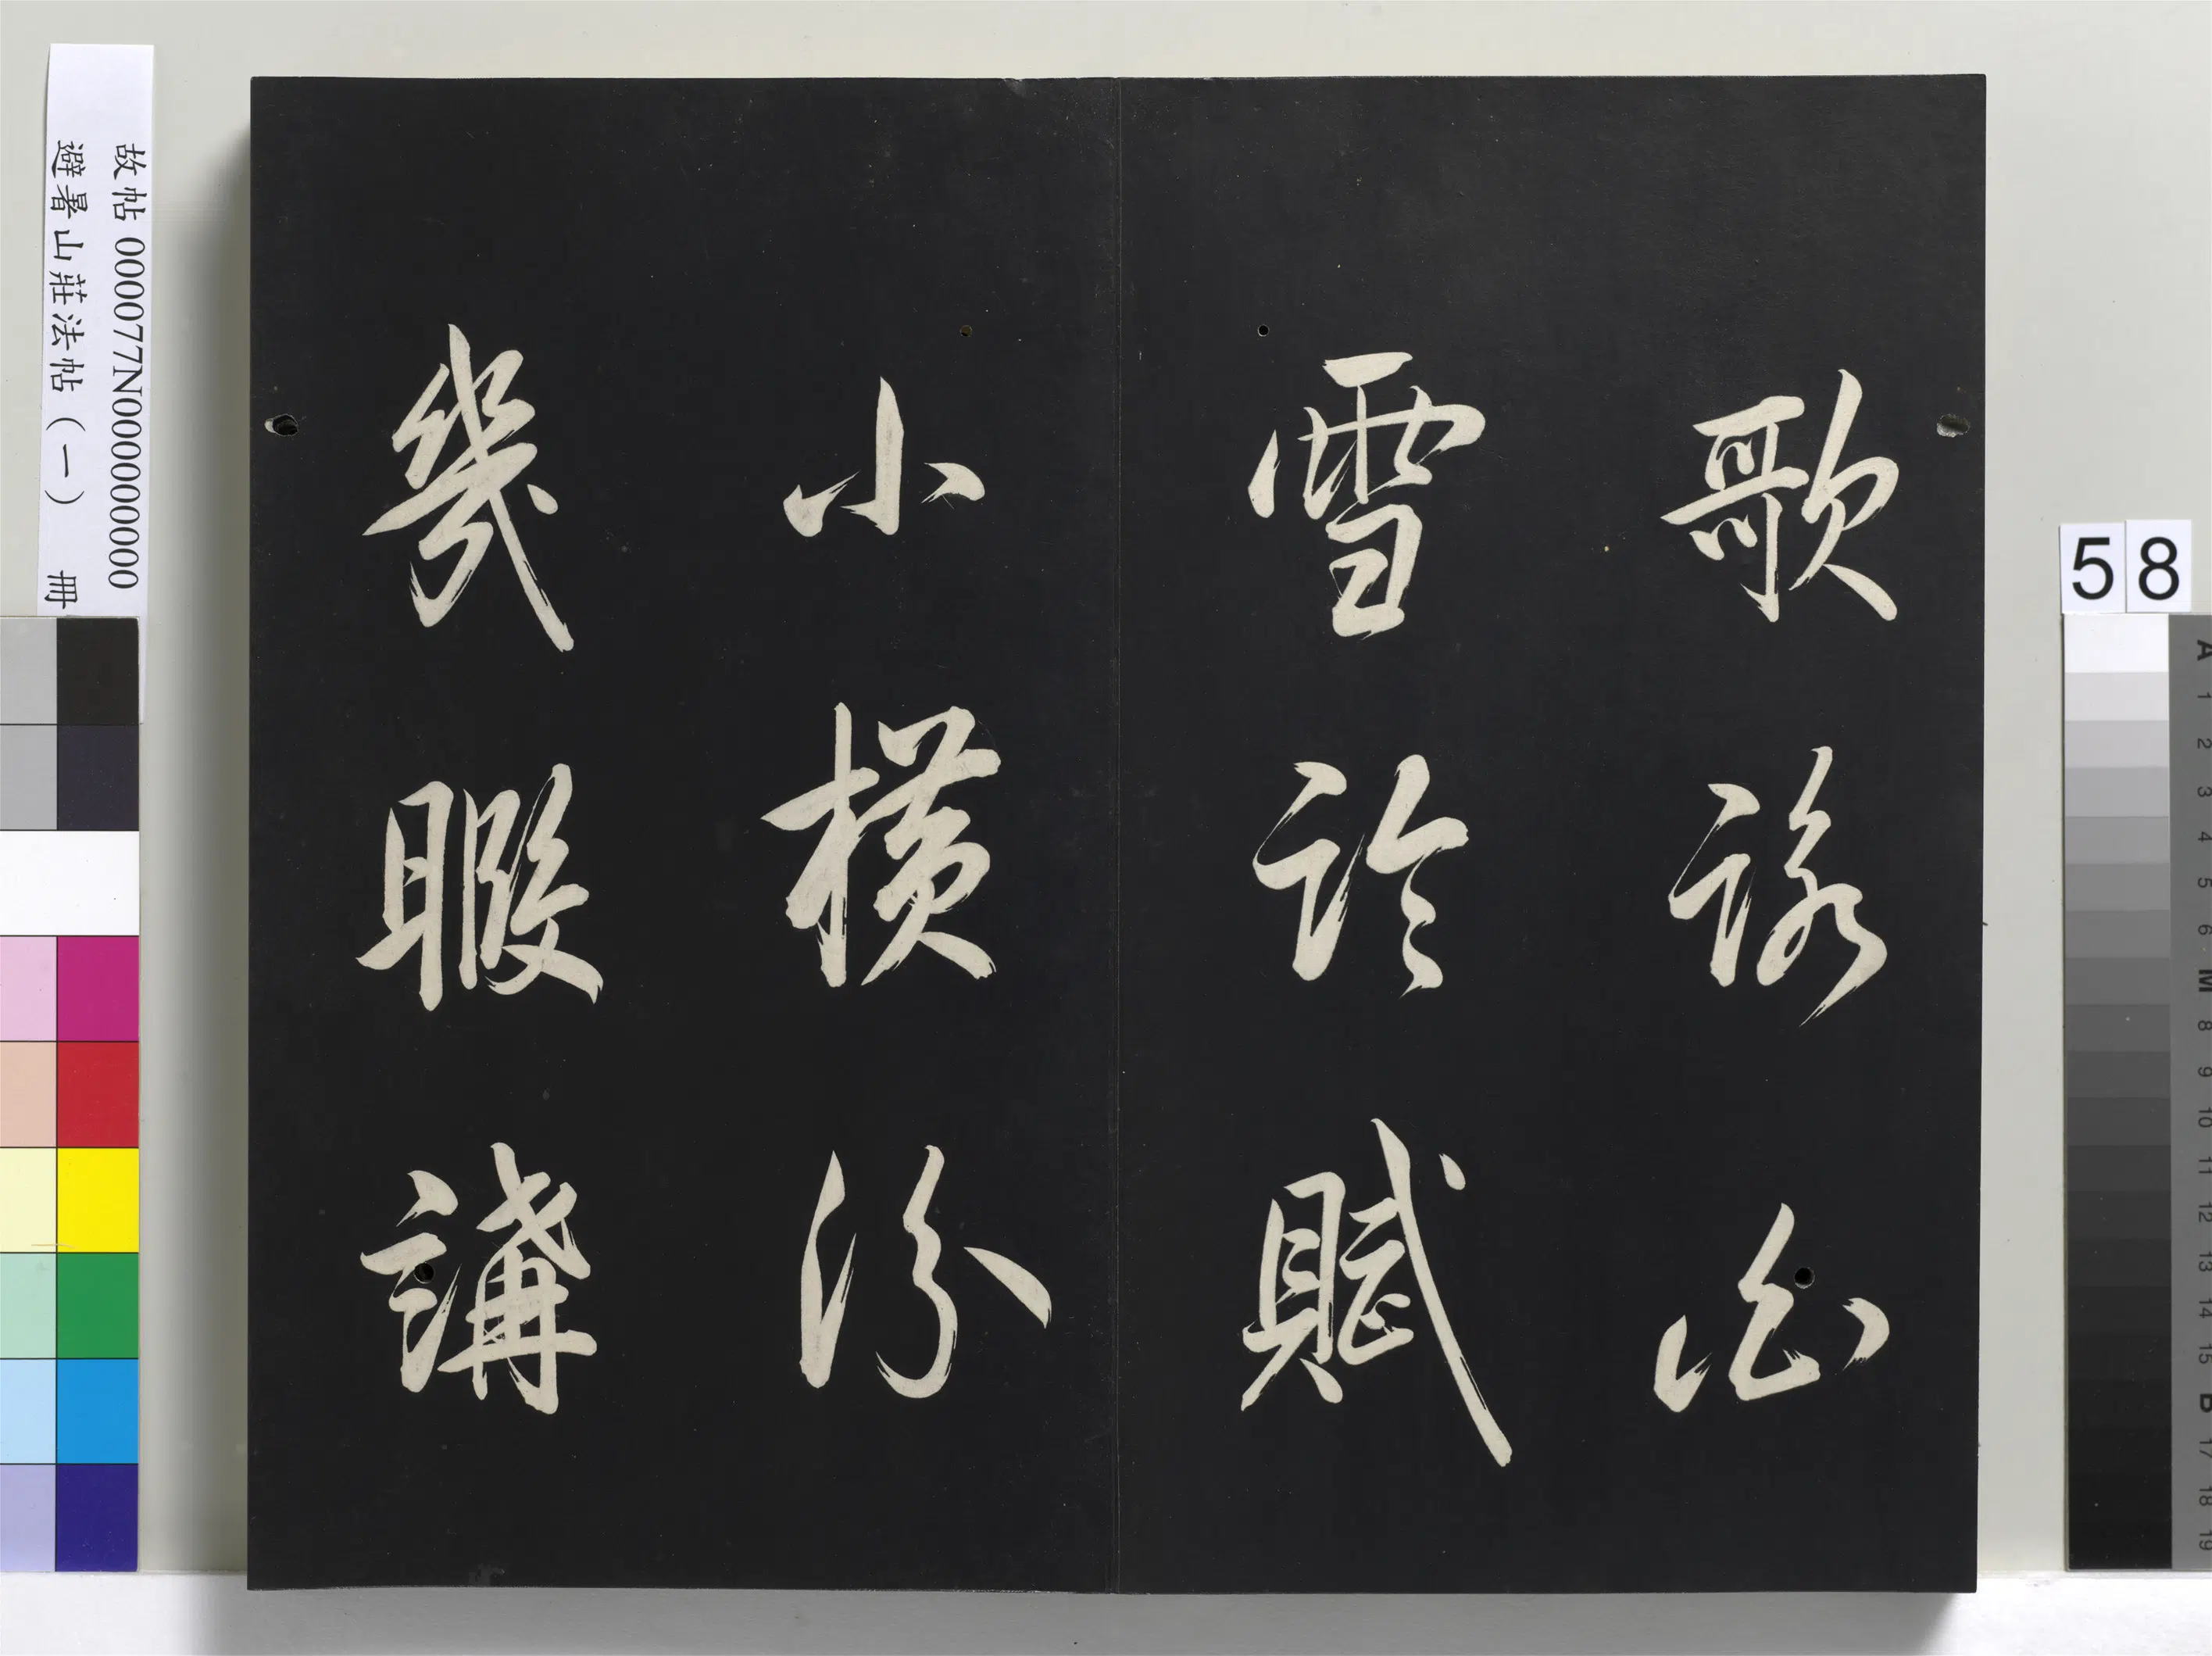 歌詠
雪訡賦
小橫汾
幾暇講
故帖 000077N000000000
避暑山莊法帖（一） 冊
58
A 1 2 3 4 5 6 M 8 9 10 11 12 13 14 15 B 17 18 19